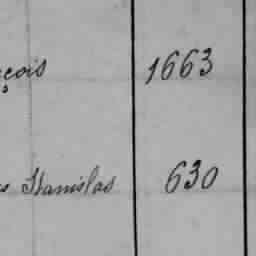 çois 1663
s Stanislas 630